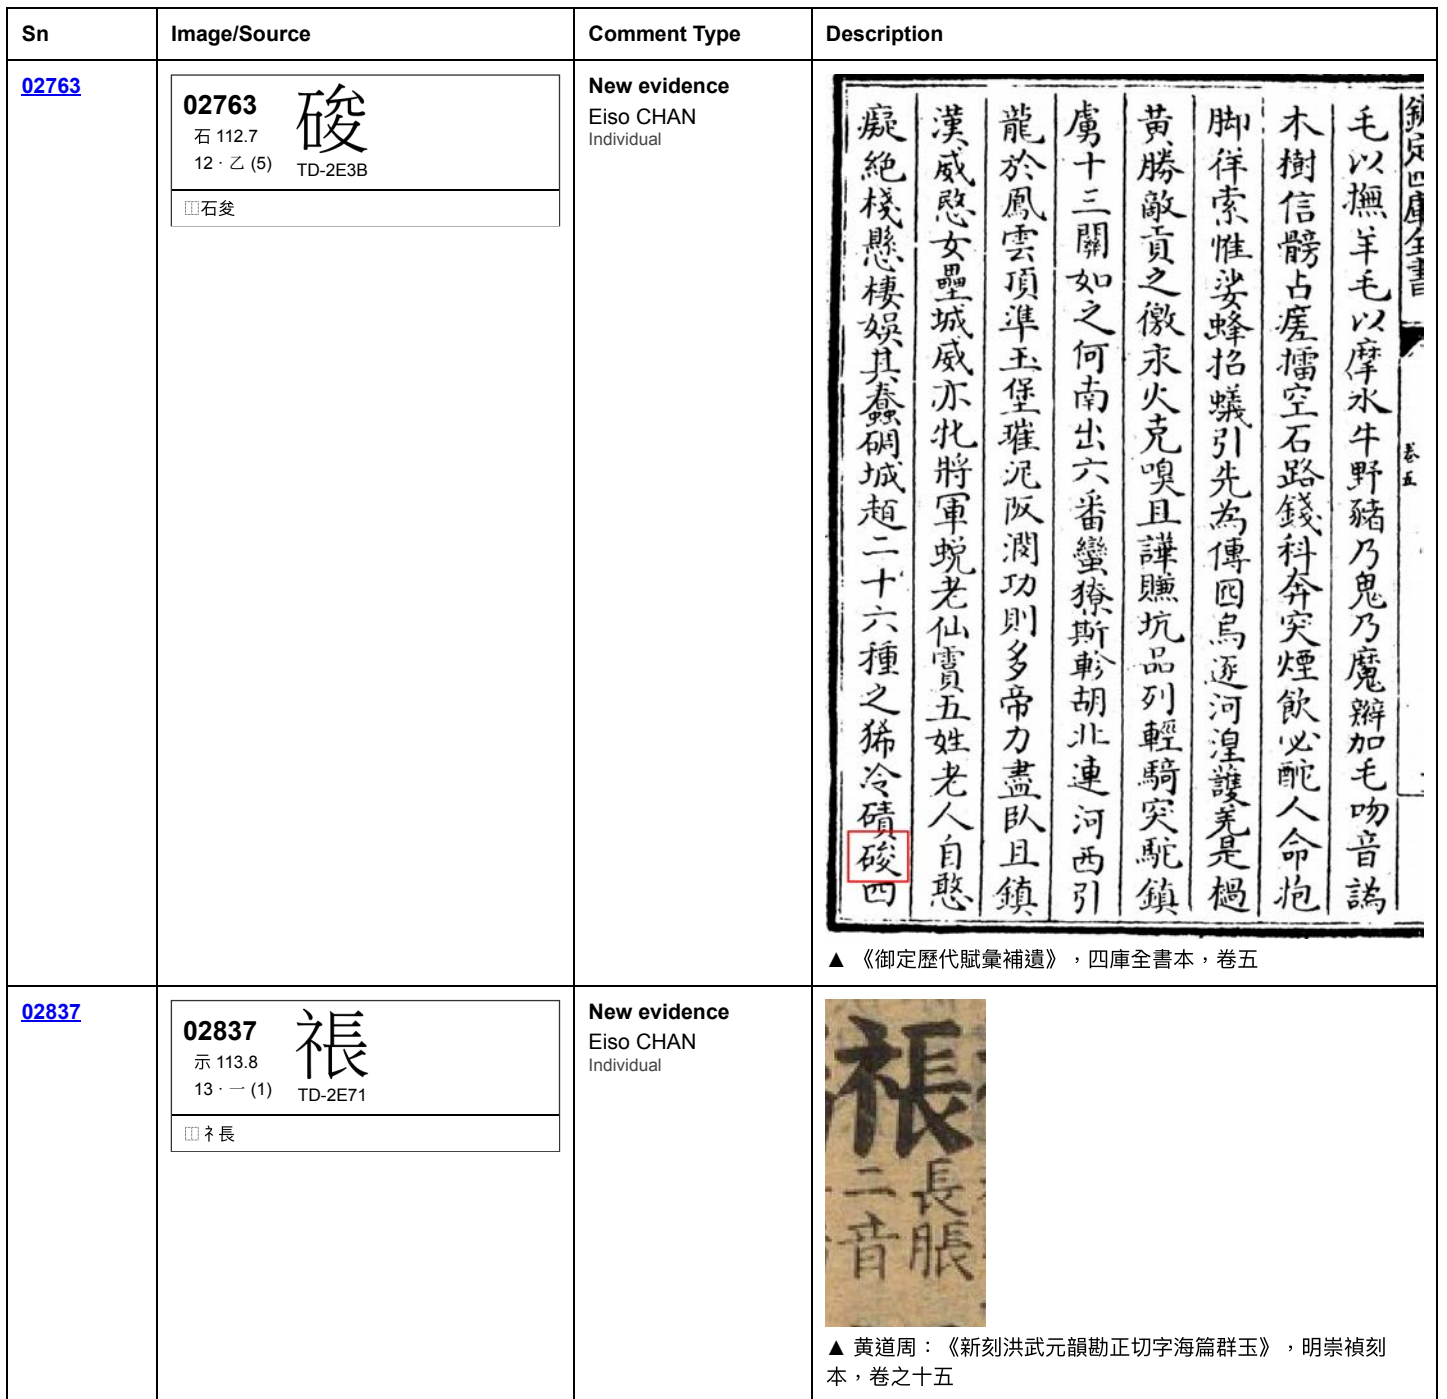 Sn Image/Source Comment Type Description
02763
02763
石 112.7
12 · 乙 (5)
TD-2E3B
⿰石夋
New evidence
Eiso CHAN
Individual
欽定四庫全書
卷五
毛以撫羊毛以摩水牛野豬乃鬼乃魔辮加毛吻音譌
木樹信髈占瘥擂空石路錢科奔突煙飲必酡人命炮
脚徉索惟娑蜂招蟻引先為傳回烏逐河湟護羌是楇
黄勝敵貢之徼汞火克嗅且譁賺坑品列輕騎突駝鎮
虜十三關如之何南出六番蠻獠斯軫胡北連河西引
龍於鳳雲頂準玉堡璀泥阪澗功則多帝力盡臥且鎮
漢威愍女壘城威亦牝將軍蜕老仙賨五姓老人自憨
癡絶棧懸棲娛其蠢硐城趄二十六種之狶冷磧四
▲ 《御定歷代賦彙補遺》，四庫全書本，卷五
02837
02837
示 113.8
13 · 一 (1)
TD-2E71
⿰礻長
New evidence
Eiso CHAN
Individual
長脹
二音
▲ 黄道周：《新刻洪武元韻勘正切字海篇群玉》，明崇禎刻
本，卷之十五